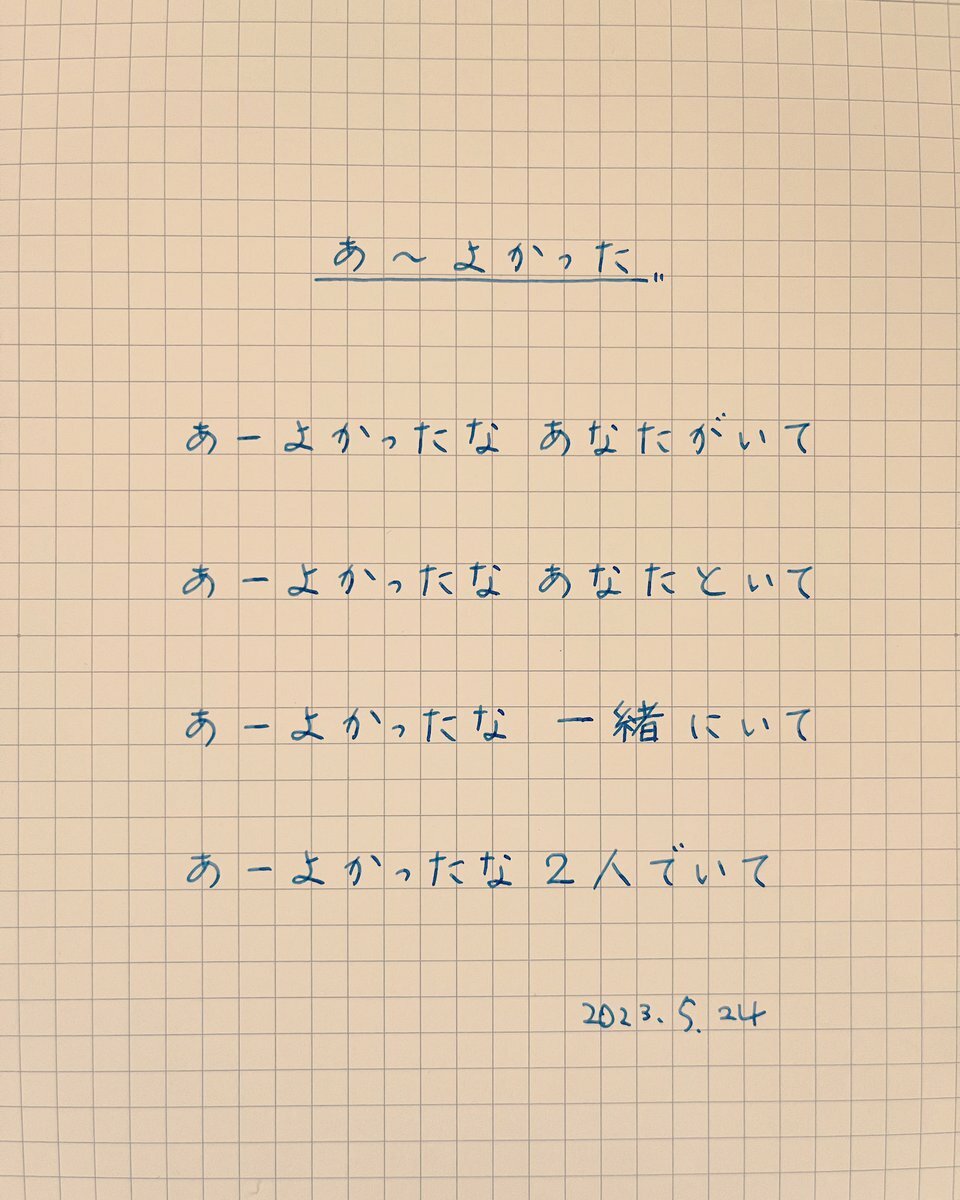 あ〜よかった〃
あーよかったな あなたがいて
あーよかったな あなたといて
あーよかったな 一緒にいて
あーよかったな 2人でいて
2023.5.24